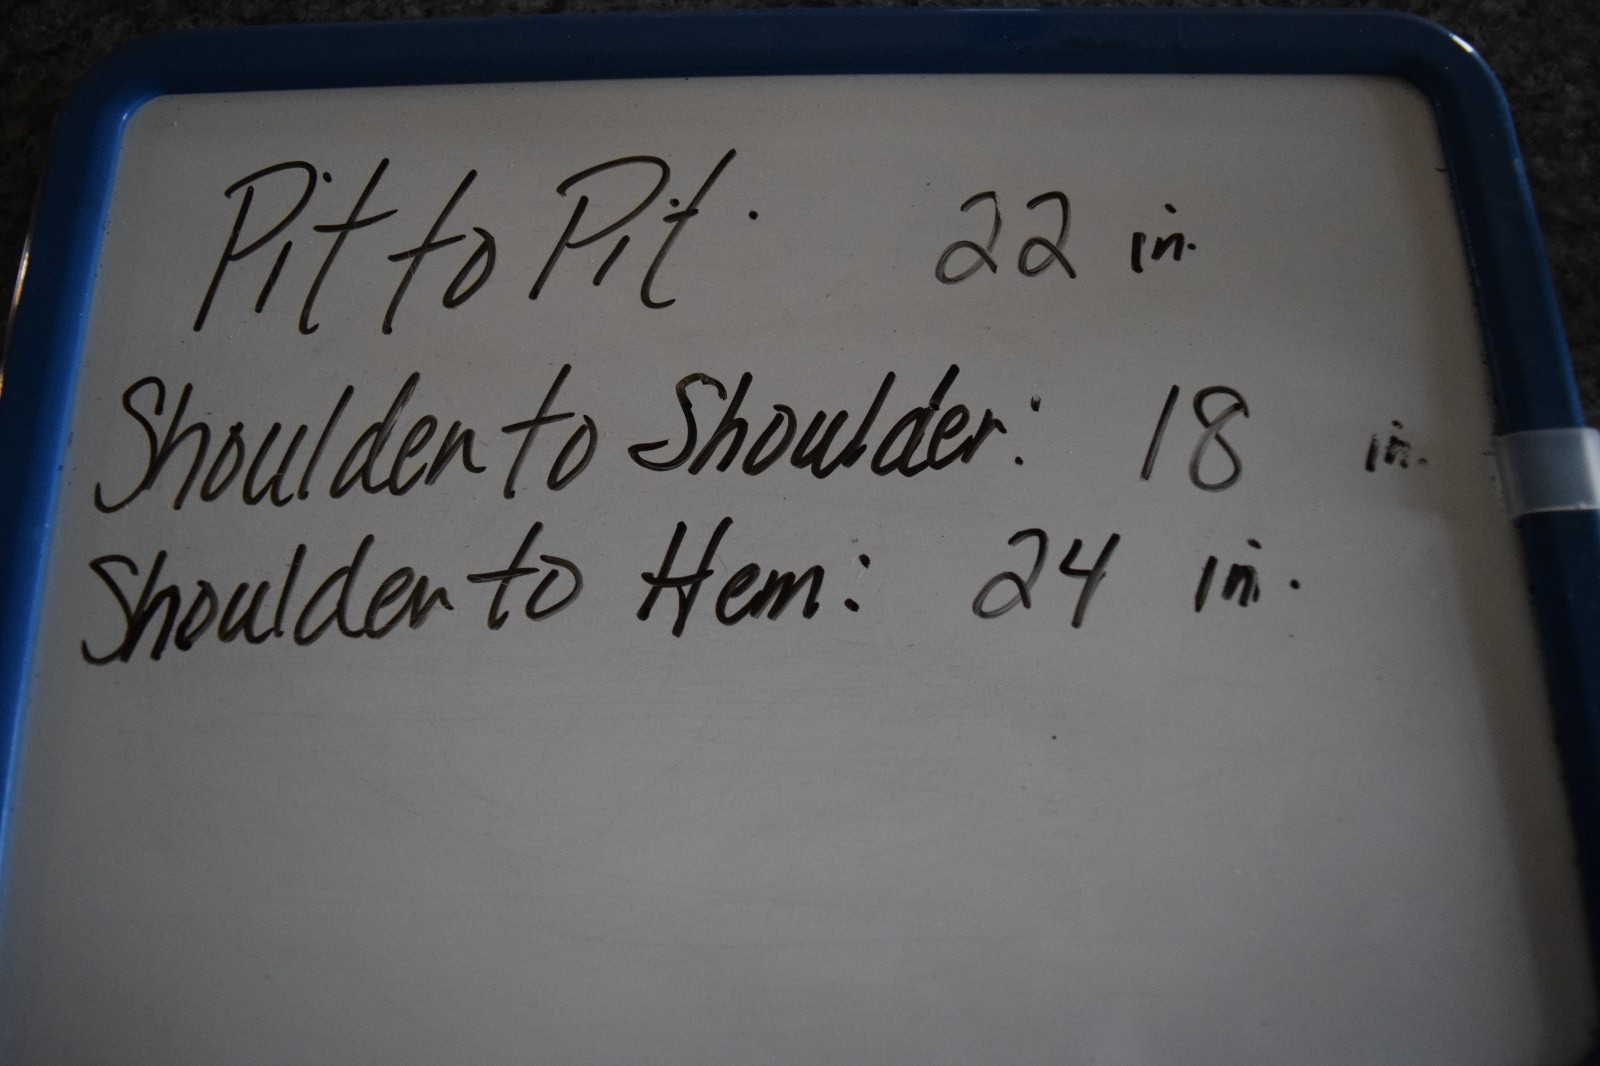 Pit to Pit. 22 in.
Shoulder to Shoulder: 18 in.
Shoulder to Hem: 24 in.